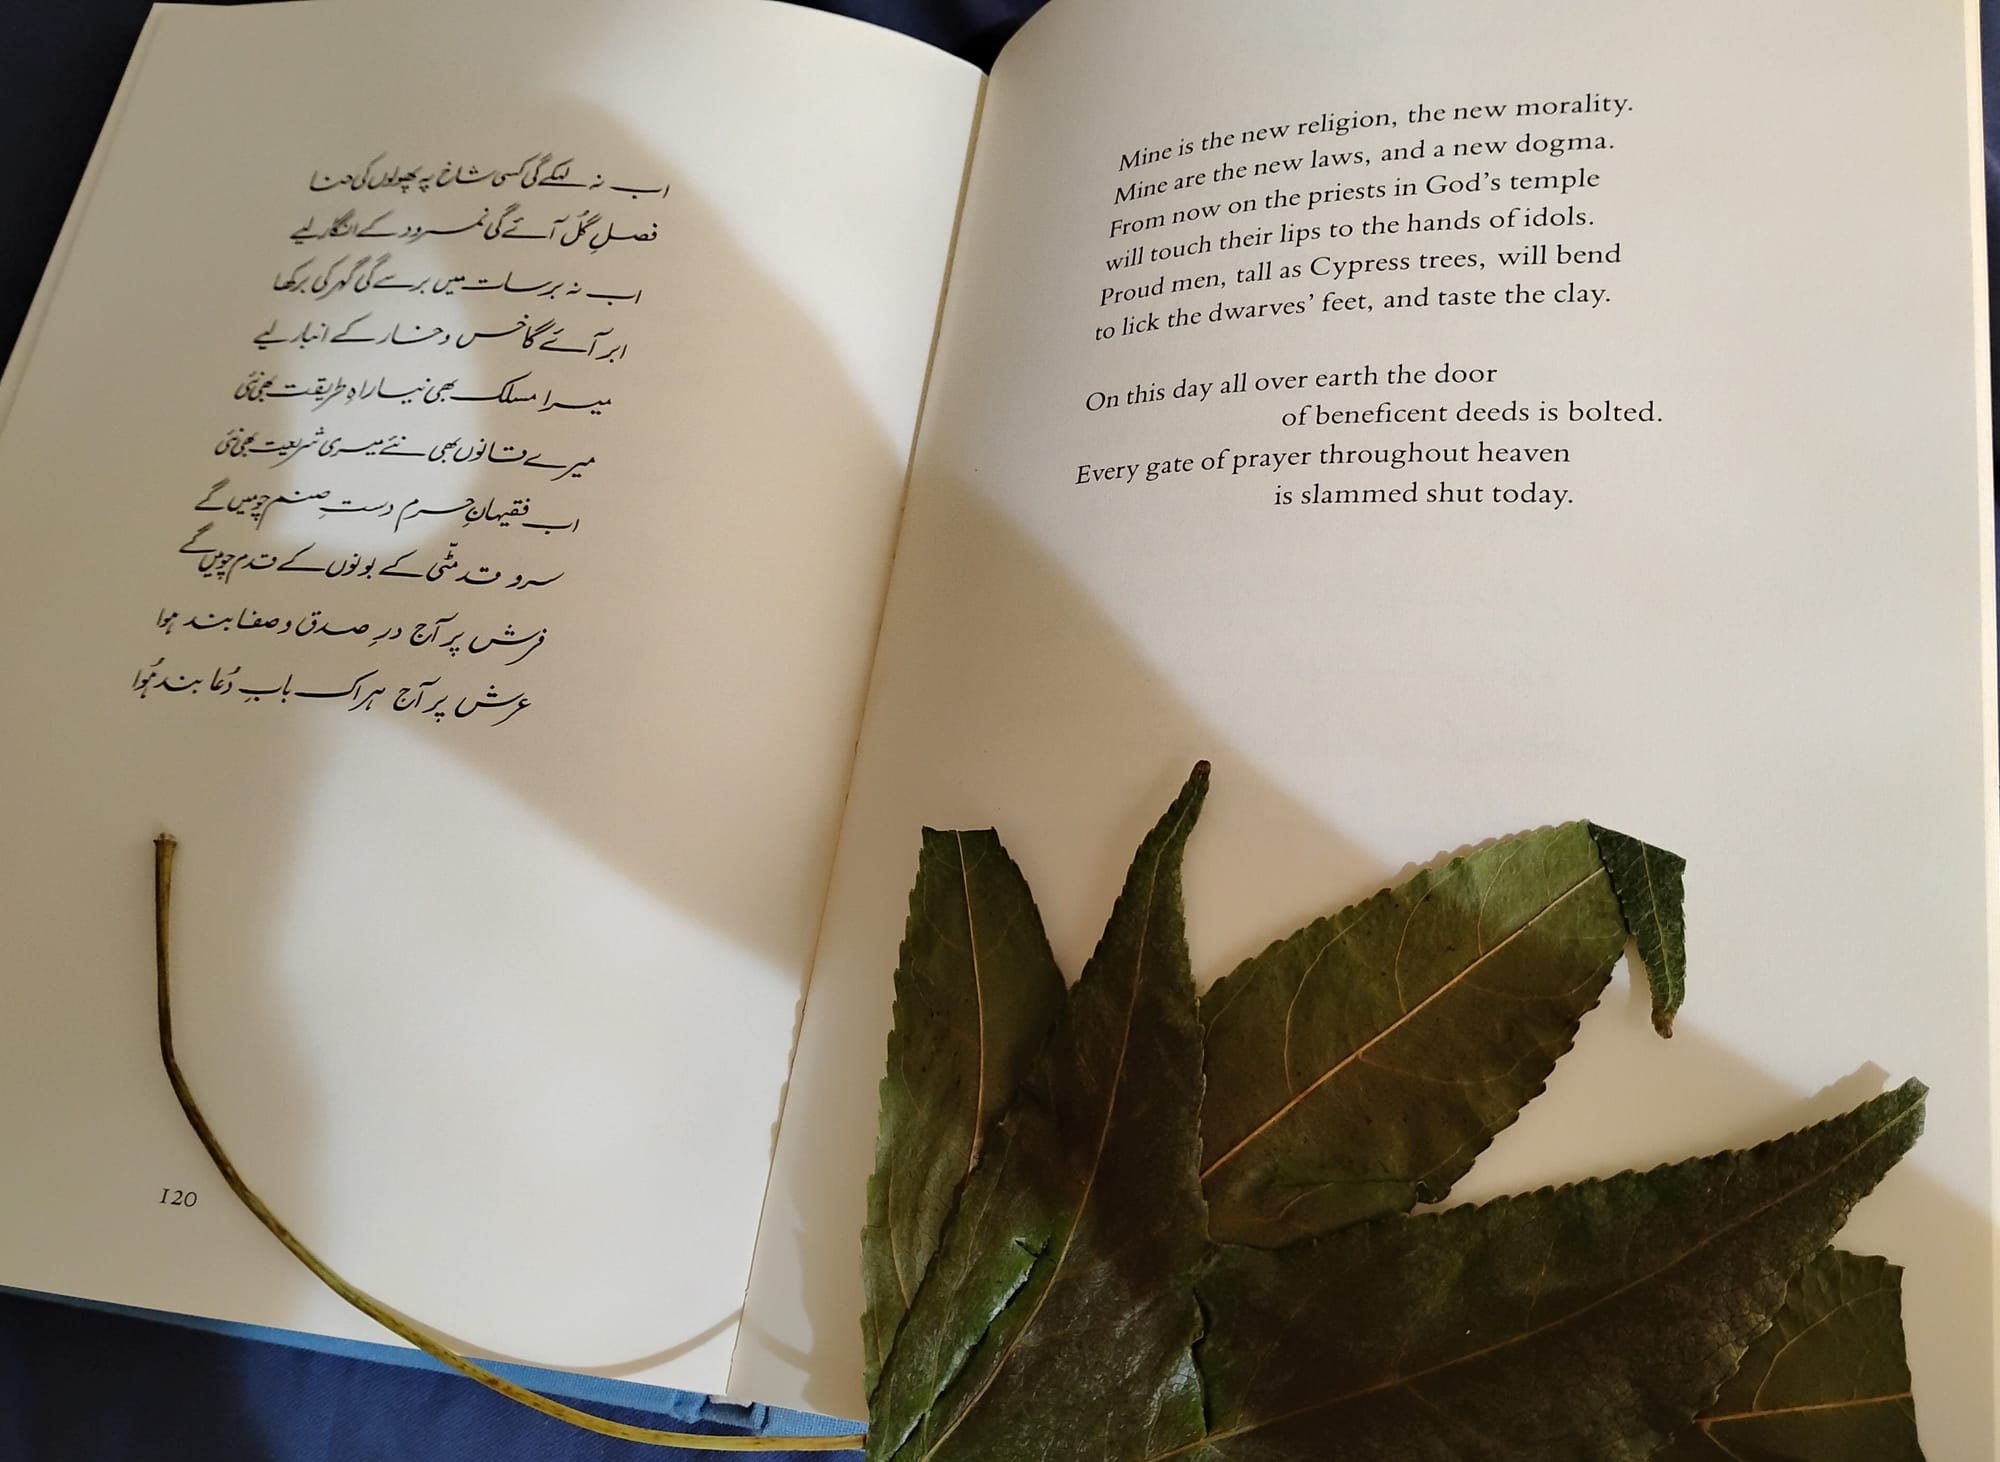 اب نہ لہکے گی کسی شاخ پہ پھولوں کی حنا
فصلِ گُل آئے گی نمرود کے انگار لیے
اب نہ برسات میں برسے گی گہر کی برکھا
ابر آئے گا خس و خار کے انبار لیے
میرا مسلک بھی نیا راہِ طریقت بھی نئی
میرے قانوں بھی نئے میری شریعت بھی نئی
اب فقیہانِ حرم دستِ صنم چومیں گے
سرو قد مٹّی کے بونوں کے قدم چومیں گے
فرش پر آج درِ صدق و صفا بند ہوا
عرش پر آج ہر اک بابِ دُعا بند ہُوا
120
Mine is the new religion, the new morality.
Mine are the new laws, and a new dogma.
From now on the priests in God's temple
will touch their lips to the hands of idols.
Proud men, tall as Cypress trees, will bend
to lick the dwarves' feet, and taste the clay.
On this day all over earth the door
of beneficent deeds is bolted.
Every gate of prayer throughout heaven
is slammed shut today.